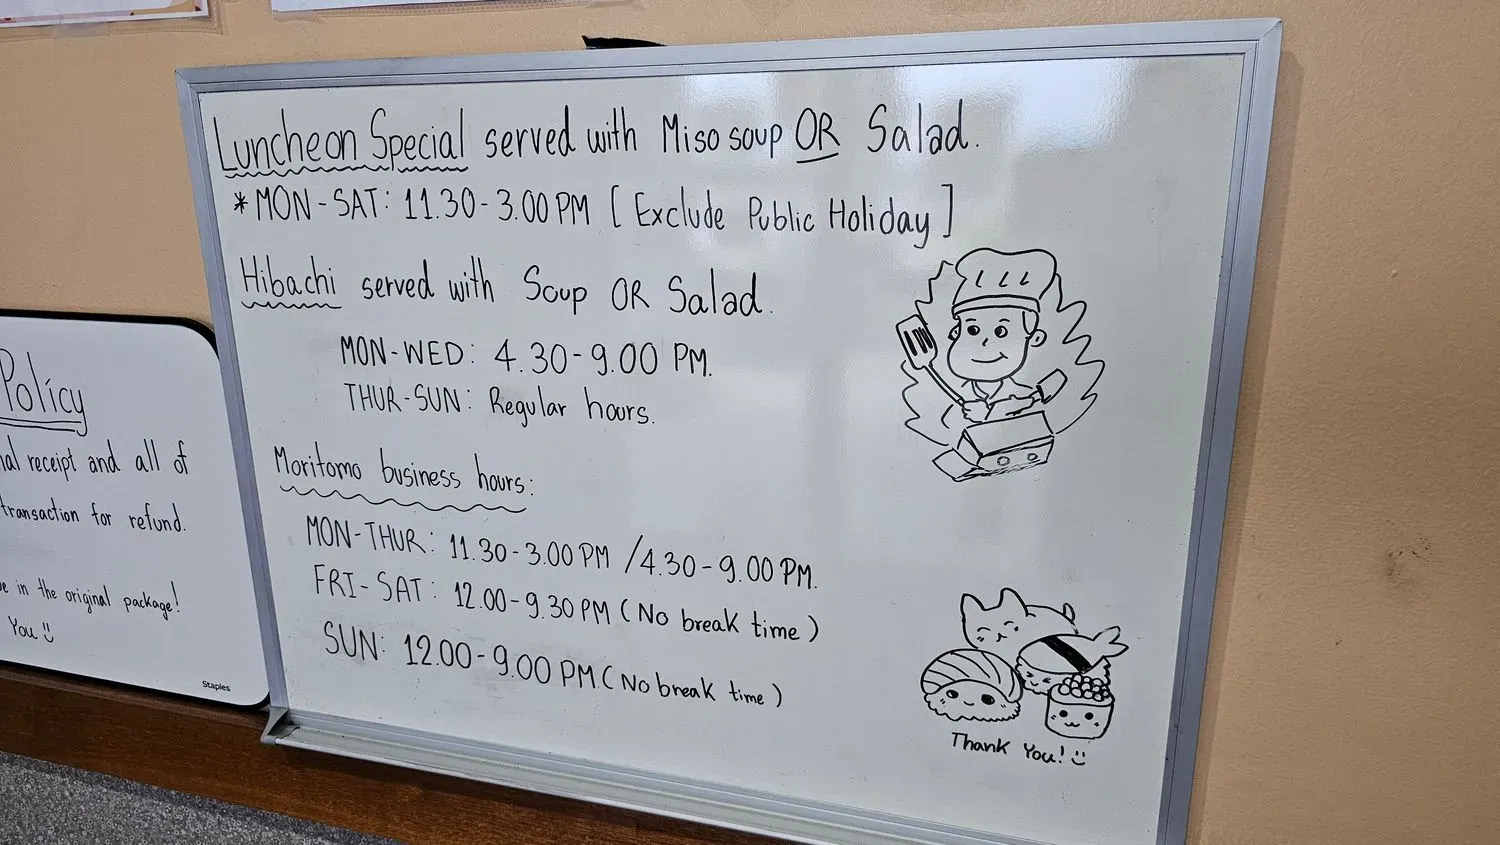 Luncheon Special served with Miso soup OR Salad.
*MON-SAT: 11.30-3.00 PM [Exclude Public Holiday]
Hibachi served with Soup OR Salad.
MON-WED: 4.30-9.00 PM.
THUR-SUN: Regular hours.
Moritomo business hours:
MON-THUR: 11.30-3.00 PM /4.30-9.00 PM.
FRI-SAT: 12.00-9.30 PM (No break time)
SUN: 12.00-9.00 PM. (No break time)
Thank You! :)
Policy
receipt and all of
transaction for refund.
in the original package!
You :)
Staples